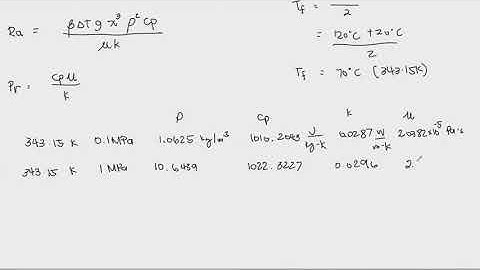 Ra = β ΔT g x³ ρ² Cp / μ k
Tf = / 2
= 120°C + 20°C / 2
Pr = Cp μ / k
Tf = 70°C (343.15K)
ρ Cp k μ
343.15 K 0.1 MPa 1.0625 kg/m³ 1010.2043 J/kg-K 0.0287 W/m-K ×10⁻⁵ Pa·s
343.15 K 1 MPa 10.6439 1022.3227 0.0296 2.